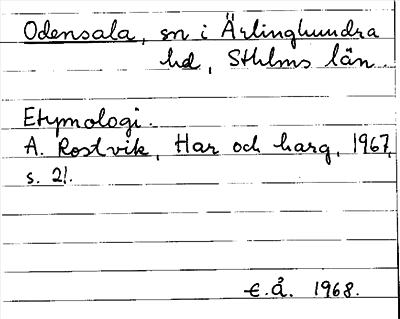 Odensala, sn i Ärlinghundra
hd, Sthlms län.
Etymologi.
A. Rostvik, Har och harg, 1967,
s. 21.
E.Å. 1968.